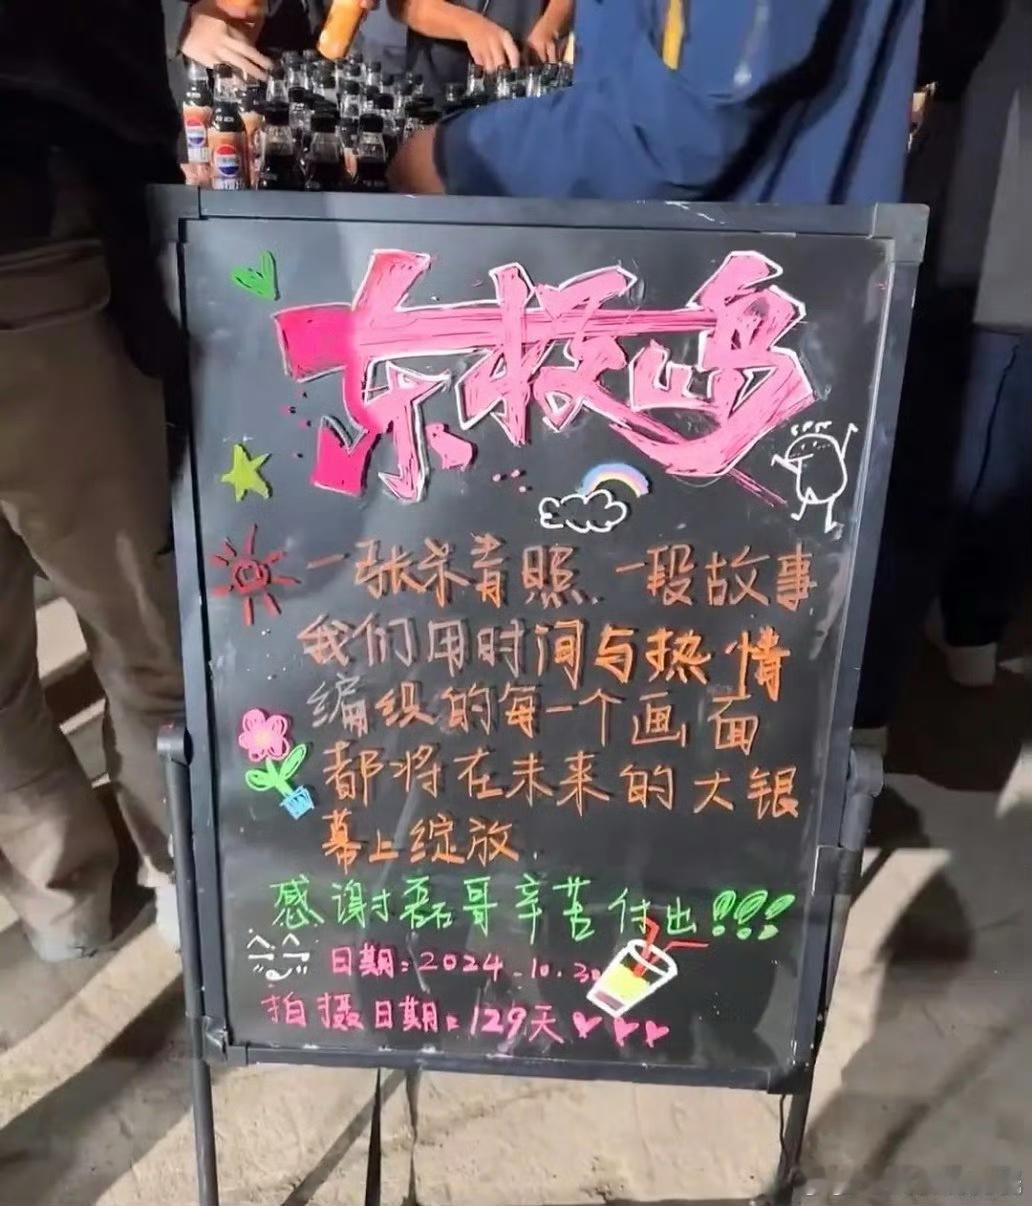 东极岛
一张杀青照.一段故事
我们用时间与热情
编织的每一个画面
都将在未来的大银
幕上绽放.
感谢磊哥辛苦付出!!!
日期:2024.10.30
拍摄日期:129天